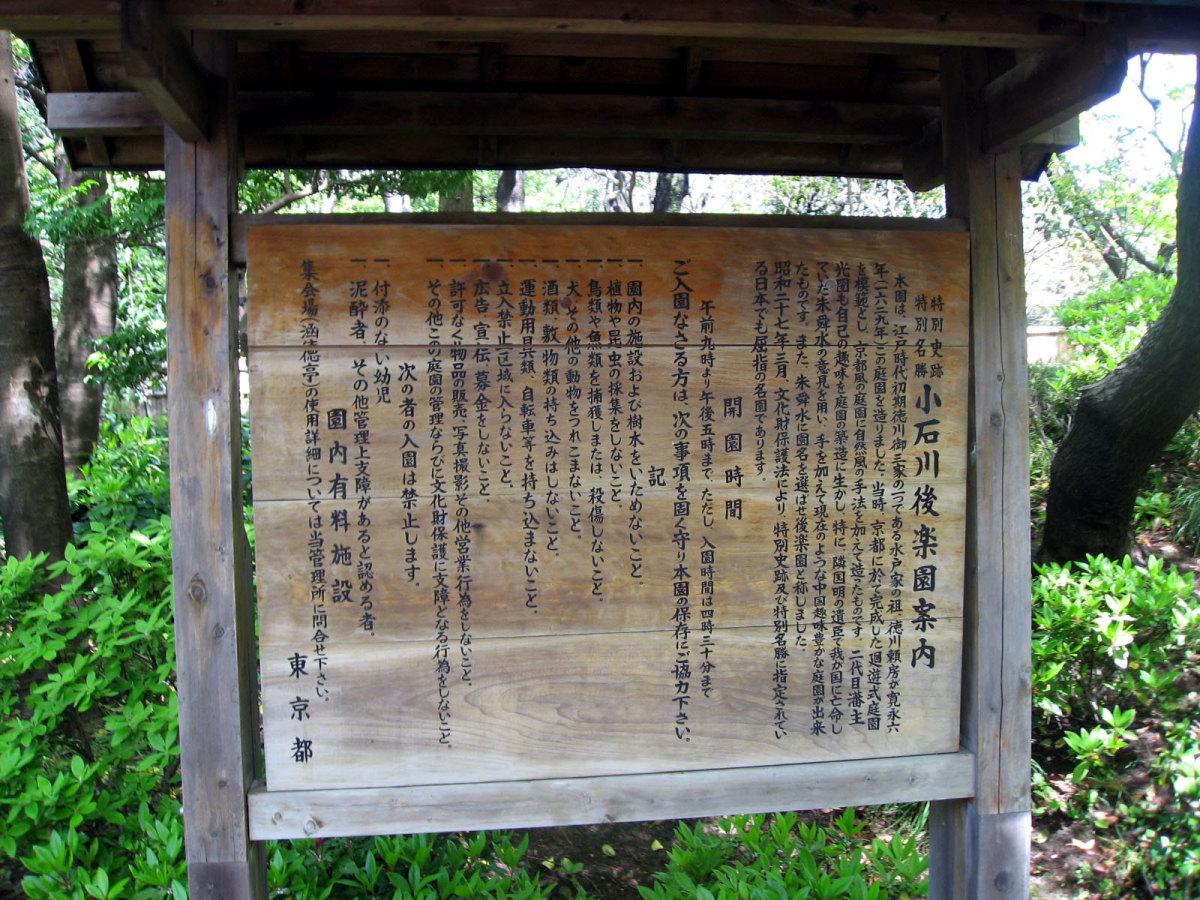 特別史跡
特別名勝
小石川後楽園案内
本園は、江戸時代初期徳川御三家の一つである水戸家の祖、徳川頼房が寛永六
年(一六二九年)この庭園を造りました。当時、京都に於て完成した廻遊式庭園
を模範とし、京都風の庭園に自然風の手法を加えて造ったものです。二代目藩主
光圀も自己の趣味を庭園の築造に生かし、特に、隣国明の遺臣で我が国に亡命し
ていた朱舜水の意見を用い、手を加えて現在のような中国趣味豊かな庭園が出来
たものです。また、朱舜水に園名を選ばせ後楽園と称しました。
昭和二十七年三月、文化財保護法により特別史跡及び特別名勝に指定されてい
る日本でも屈指の名園であります。
開園時間
午前九時より午後五時まで、ただし、入園時間は四時三十分まで
ご入園なさる方は、次の事項を固く守り本園の保存にご協力下さい。
記
一 園内の施設および樹木をいためないこと
一 植物や昆虫の採集をしないこと。
一 鳥類や魚類を捕獲しまたは、殺傷しないこと。
一 犬、その他の動物をつれこまないこと。
一 酒類、敷物類の持ち込みはしないこと。
一 運動用具類、自転車等を持ち込まないこと。
一 立入禁止区域に入らないこと。
一 広告、宣伝、募金をしないこと
一 許可なく物品の販売、写真撮影その他営業行為をしないこと。
一 その他この庭園の管理ならびに文化財保護に支障となる行為をしないこと。
次の者の入園は禁止します。
一 付添のない幼児
一 泥酔者、その他管理上支障があると認める者。
園内有料施設
集会場(涵徳亭)の使用詳細については当管理所に問合せ下さい。
東京都